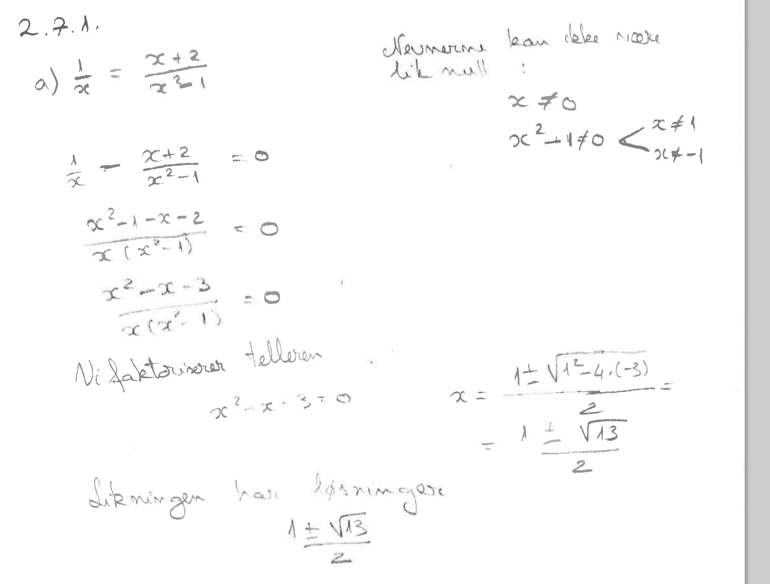 2.7.1.
a) 1/x = (x+2)/(x²-1)
Nevnerne kan ikke være
lik null :
x ≠ 0
x² - 1 ≠ 0 < x ≠ 1
x ≠ -1
1/x - (x+2)/(x²-1) = 0
(x²-1-x-2)/(x(x²-1)) = 0
(x²-x-3)/(x(x²-1)) = 0
Vi faktoriserer telleren
x² - x - 3 = 0
x = (1 ± √(1²-4·(-3)))/2 =
= (1 ± √13)/2
Likningen har løsningene
(1 ± √13)/2